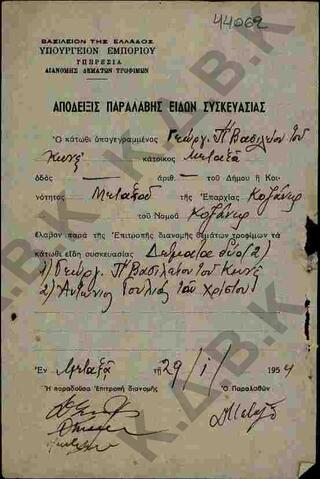 44062
ΒΑΣΙΛΕΙΟΝ ΤΗΣ ΕΛΛΑΔΟΣ
ΥΠΟΥΡΓΕΙΟΝ ΕΜΠΟΡΙΟΥ
ΥΠΗΡΕΣΙΑ
ΔΙΑΝΟΜΗΣ ΔΕΜΑΤΩΝ ΤΡΟΦΙΜΩΝ
ΑΠΟΔΕΙΞΙΣ ΠΑΡΑΛΑΒΗΣ ΕΙΔΩΝ ΣΥΣΚΕΥΑΣΙΑΣ
Ὁ κάτωθι ὑπογεγραμμένος Γεώργ. Π Βασιλείου τοῦ
κάτοικος Μεταξᾶ
ὁδὸς — ἀριθ. — τοῦ Δήμου ἢ Κοι-
νότητος Μεταξᾶ τῆς Ἐπαρχίας Κοζάνης
τοῦ Νομοῦ Κοζάνης
ἔλαβον παρὰ τῆς Ἐπιτροπῆς διανομῆς δεμάτων τροφίμων τὰ
κάτωθι εἴδη συσκευασίας Δέματα δύο (2)
1) Γεώργ. Π Βασιλείου τοῦ
2) Ἀντώνιος τοῦ Χρίστου
Ἐν Μεταξᾷ τῇ 29/1/ 1954
Ἡ παραδοῦσα Ἐπιτροπὴ διανομῆς Ὁ Παραλαβὼν
Κ.Δ.Β.Κ